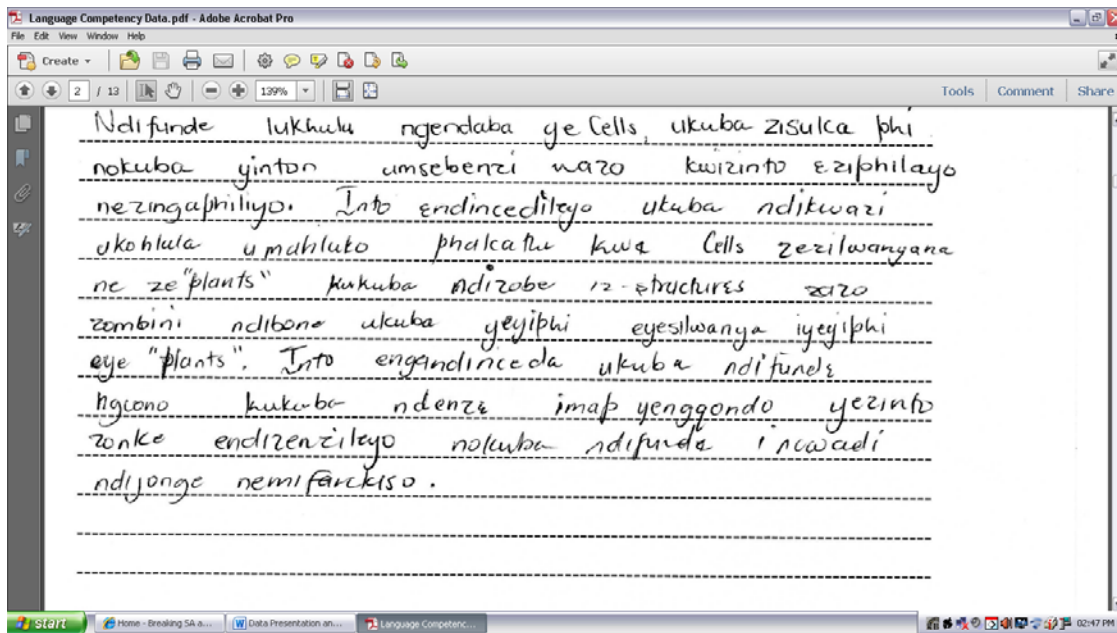 Language Competency Data.pdf - Adobe Acrobat Pro
File Edit View Window Help
Create
2 / 13 139% Tools Comment Share
Ndifunde lukhulu ngendaba ye Cells, ukuba zisuka phi
nokuba yinton umsebenzi wazo kwizinto eziphilayo
nezingaphiliyo. Into endincedileyo ukuba ndikwazi
ukohlula umahluko phakathi kwe Cells zezilwanyana
ne ze "plants" kukuba ndizobe iz-structures zazo
zombini ndibone ukuba yeyiphi eyesilwanya iyeyiphi
eye "plants". Into engandinceda ukuba ndifunde
ngcono kukuba ndenze imap yengqondo yezinto
zonke endizenzileyo nokuba ndifunde incwadi
ndijonge nemifanekiso.
start Home - Breaking SA a... Data Presentation an... Language Competenc... 02:47 PM